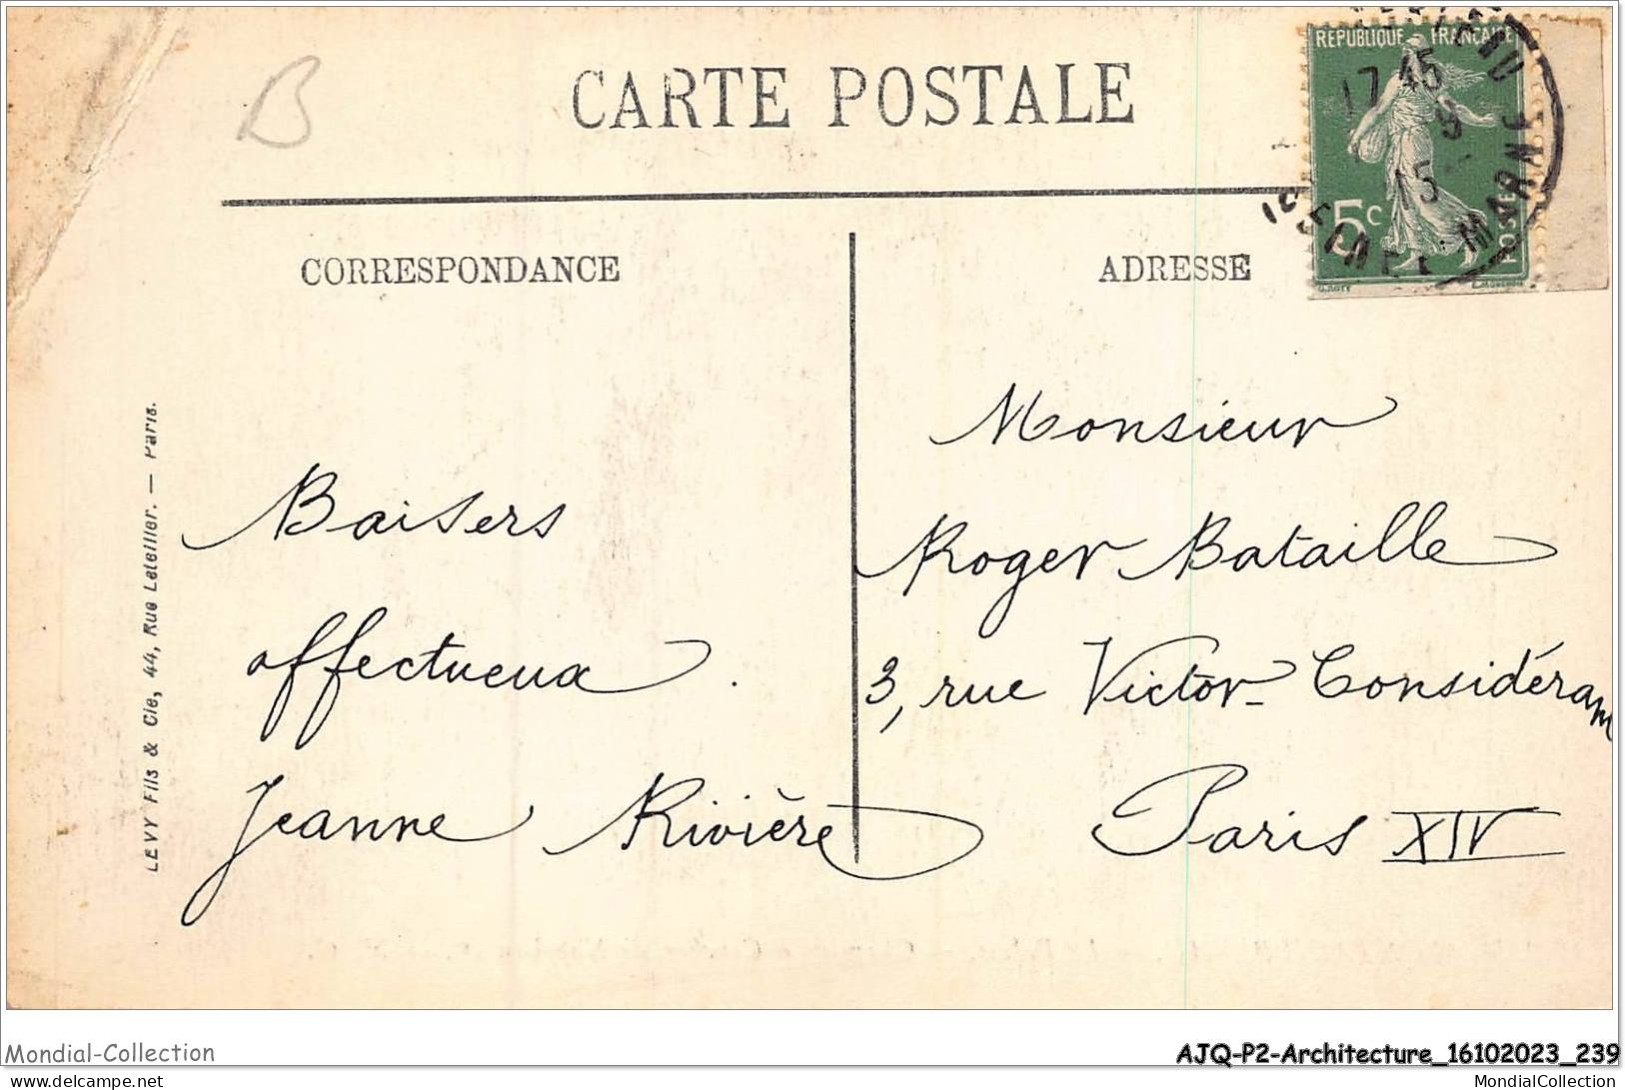 B
CARTE POSTALE
RÉPUBLIQUE FRANÇAISE
17 45
9
15
5c
POSTES
SEINE & MARNE
CORRESPONDANCE
ADRESSE
Baisers
affectueux.
Jeanne Rivière
Monsieur
Roger Bataille
3, rue Victor-Considéran
Paris XIV
LEVY Fils & Cie, 44, Rue Letellier. — Paris.
Mondial-Collection
AJQ-P2-Architecture_16102023_239
delcampe.net
MondialCollection